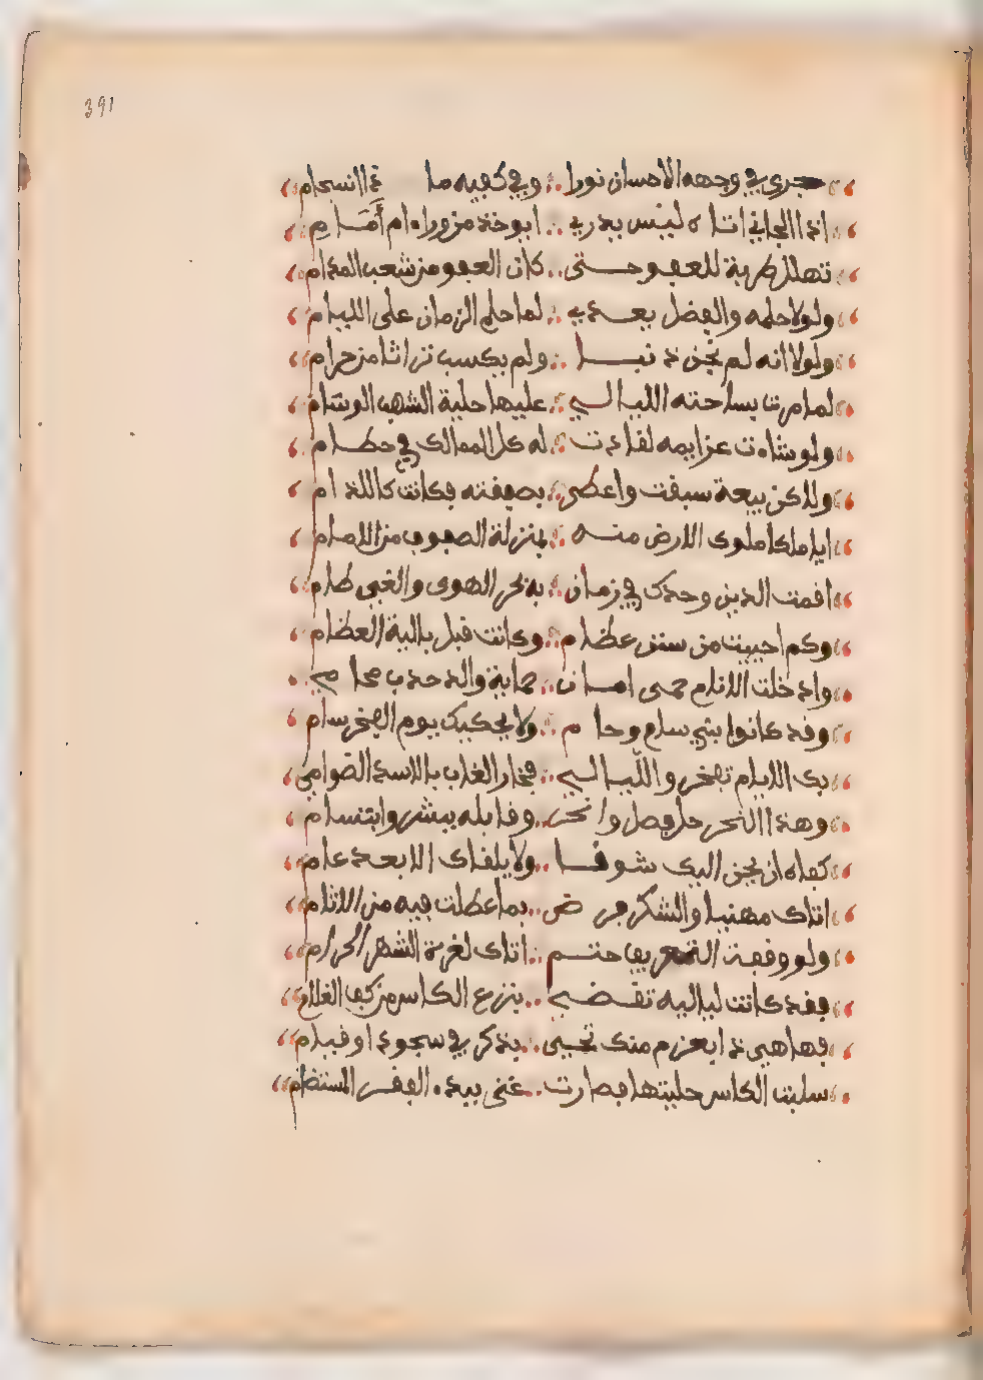 391
جرى في وجهه الاحسان نورا ؞ وفي كفيه ما ذا انسجام
اذا الجاني اتاه ليس يدري ؞ ايوخذ من وراه ام أَمَامِ
تهلل طربة للعفو حتى ؞ كان العفو من شعب المدام
ولولا حلمه والفضل يعدي ؞ لما حلم الزمان على الليام
ولولا انه لم يجن ذنبا ؞ ولم يكسب تراثا من حرام
لما مرت بساحته الليالي ؞ عليها حلية الشهب الوسام
ولو شاءت عزايمه لقادت ؞ له كل الممالك في حطام
ولاكن بيعة سبقت واعطى ؞ بصفقته فكانت كاللذام
ايا ملكا ملوك الارض منه ؞ بمنزلة الصفوف من الامام
اقمت الدين وحدك في زمان ؞ به بحر الهوى والغي طام
وكم احييت من سنن عظام ؞ وكانت قبل بالية العظام
وادخلت الانام حمى امان ؞ حماية والد حدب محامي
وقد كانوا بني سام وحام ؞ ولا يحكيك يوم الفخر سام
بك الايام تفخر والليالي ؞ فخار الغاب بالاسد الضوامي
وهذا النحر حل فصل وانحر ؞ وقابله ببشر وابتسام
كفاه ان يجن اليك شوقا ؞ ولا يلقاك الا بعد عام
اتاك مهنيا والشكر فرض ؞ بما عطلت فيه من الاثام
ولو وقفت التعريف حتم ؞ اتاك لغرة الشهر الحرام
فقد كانت لياليه تقضي ؞ بنزع الكاس من كف الغلام
فها هي ذا بعزم منك تحيى ؞ بذكر في سجود او قيام
سلبت الكاس حليتها فصارت ؞ غنى بيد الفقر المستضام